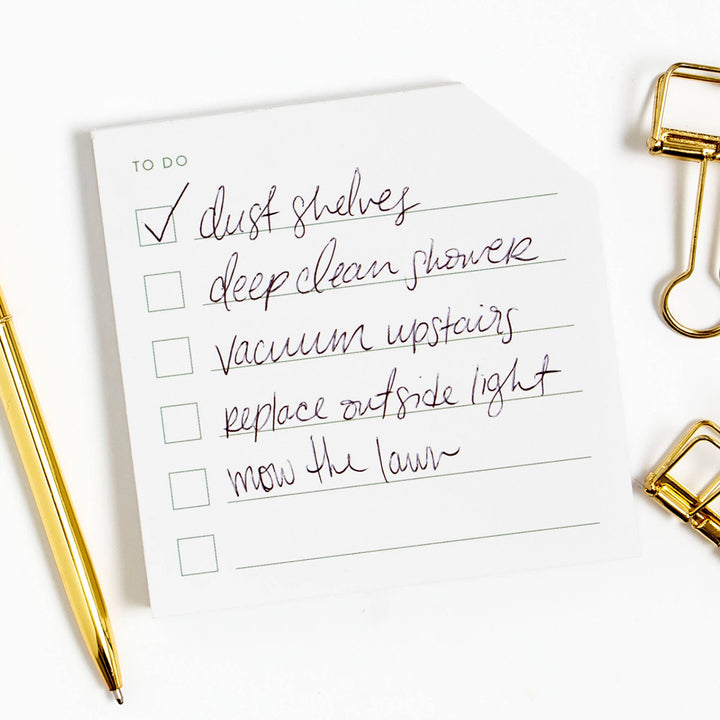 TO DO
dust shelves
deep clean shower
vacuum upstairs
replace outside light
mow the lawn